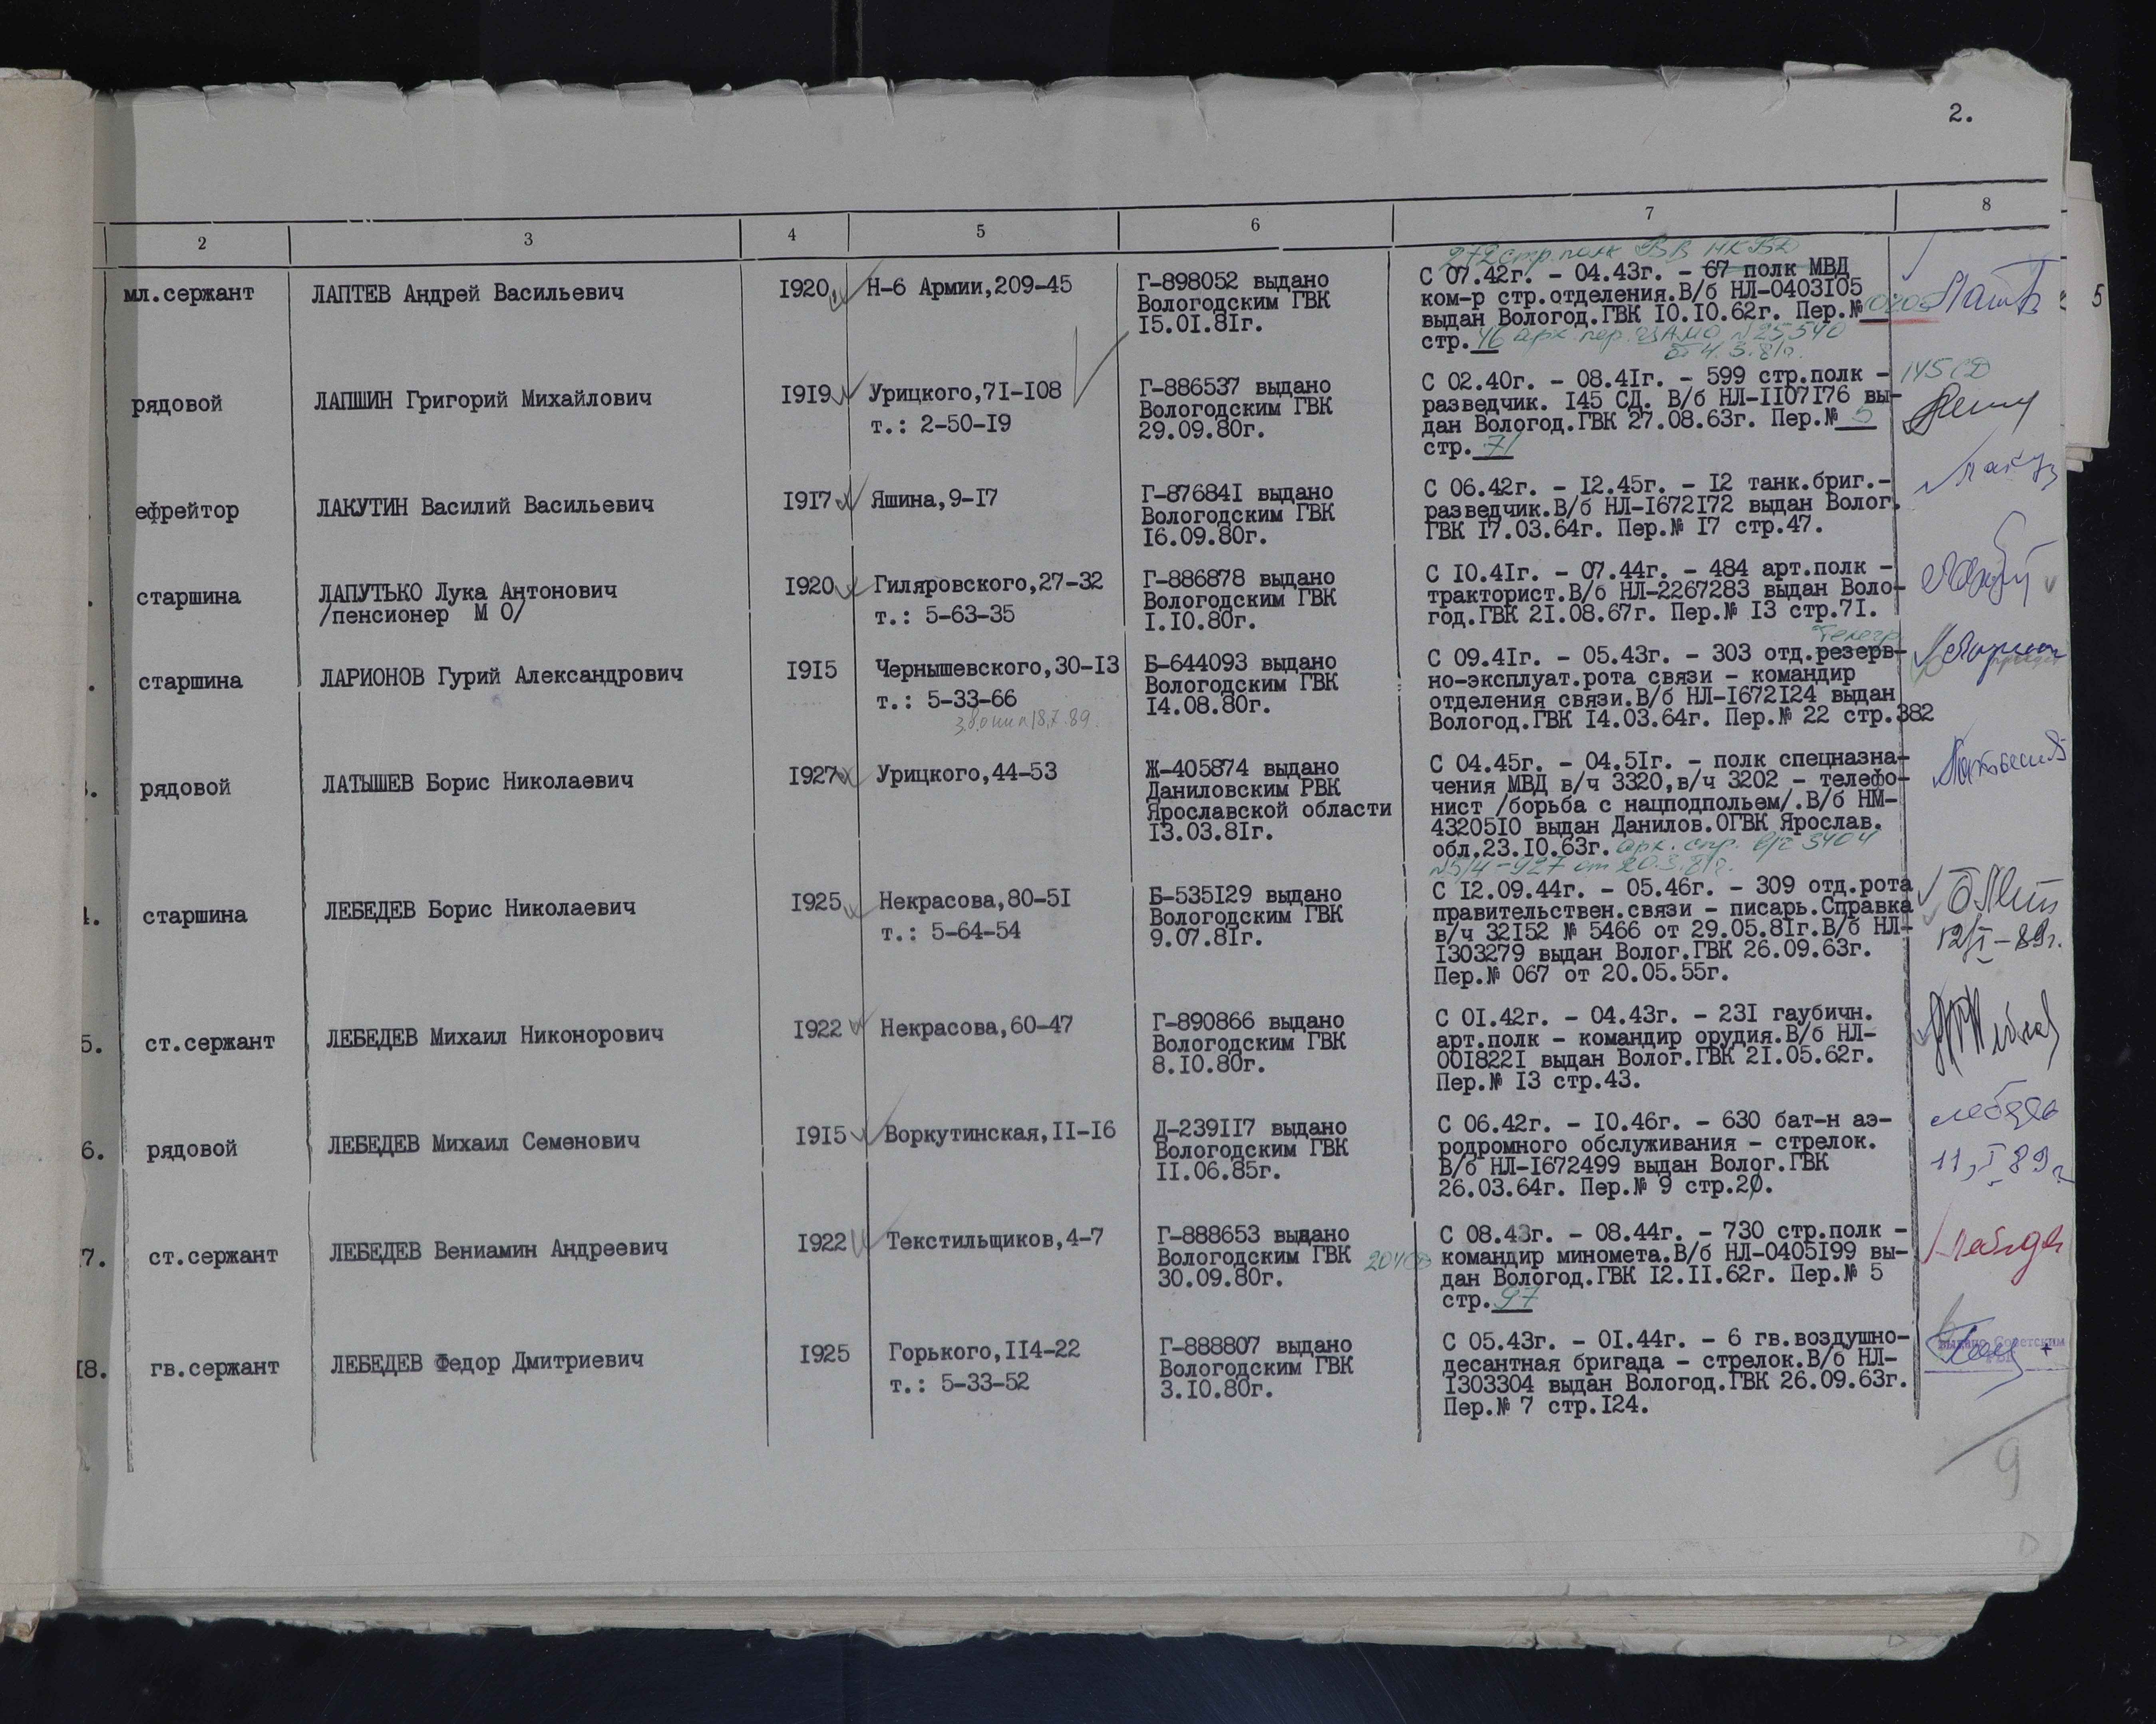 2.
2 3 4 5 6 7 8
272 стр.полк ВВ НКВД
мл.сержант ЛАПТЕВ Андрей Васильевич I920 Н-6 Армии,209-45 Г-898052 выдано
Вологодским ГВК
I5.0I.8Iг.
С 07.42г. - 04.43г. - 67 полк МВД
ком-р стр.отделения.В/б НЛ-0403I05
выдан Вологод.ГВК I0.I0.62г. Пер.№
стр. 46 арх. пер. ЦАМО №25540
от 4.3.81г.
5
рядовой ЛАПШИН Григорий Михайлович I9I9 Урицкого,7I-I08
т.: 2-50-I9
Г-886537 выдано
Вологодским ГВК
29.09.80г.
С 02.40г. - 08.4Iг. - 599 стр.полк -
разведчик. I45 СД. В/б НЛ-II07I76 вы-
дан Вологод.ГВК 27.08.63г. Пер.№ 5
стр. 71
145 СД
ефрейтор ЛАКУТИН Василий Васильевич I9I7 Яшина,9-I7
Г-87684I выдано
Вологодским ГВК
I6.09.80г.
С 06.42г. - I2.45г. - I2 танк.бриг.-
разведчик.В/б НЛ-I672I72 выдан Волог.
ГВК I7.03.64г. Пер.№ I7 стр.47.
старшина ЛАПУТЬКО Лука Антонович
/пенсионер М О/
I920 Гиляровского,27-32
т.: 5-63-35
Г-886878 выдано
Вологодским ГВК
I.I0.80г.
С I0.4Iг. - 07.44г. - 484 арт.полк -
тракторист.В/б НЛ-2267283 выдан Воло-
год.ГВК 2I.08.67г. Пер.№ I3 стр.7I.
старшина ЛАРИОНОВ Гурий Александрович I9I5 Чернышевского,30-I3
т.: 5-33-66
звонил 18.7.89.
Б-644093 выдано
Вологодским ГВК
I4.08.80г.
телегр.
С 09.4Iг. - 05.43г. - 303 отд.резерв-
но-эксплуат.рота связи - командир
отделения связи.В/б НЛ-I672I24 выдан
Вологод.ГВК I4.03.64г. Пер.№ 22 стр.382
3. рядовой ЛАТЫШЕВ Борис Николаевич I927 Урицкого,44-53
Ж-405874 выдано
Даниловским РВК
Ярославской области
I3.03.8Iг.
С 04.45г. - 04.5Iг. - полк спецназна-
чения МВД в/ч 3320,в/ч 3202 - телефо-
нист /борьба с нацподпольем/.В/б НМ-
43205I0 выдан Данилов.ОГВК Ярослав.
обл.23.I0.63г. арх. спр. в/ч 3404
№5/4-927 от 20.3.81г.
4. старшина ЛЕБЕДЕВ Борис Николаевич I925 Некрасова,80-5I
т.: 5-64-54
Б-535I29 выдано
Вологодским ГВК
9.07.8Iг.
С I2.09.44г. - 05.46г. - 309 отд.рота
правительствен.связи - писарь.Справка
в/ч 32I52 № 5466 от 29.05.8Iг.В/б НЛ-
I303279 выдан Волог.ГВК 26.09.63г.
Пер.№ 067 от 20.05.55г.
12/I-89г.
5. ст.сержант ЛЕБЕДЕВ Михаил Никонорович I922 Некрасова,60-47
Г-890866 выдано
Вологодским ГВК
8.I0.80г.
С 0I.42г. - 04.43г. - 23I гаубичн.
арт.полк - командир орудия.В/б НЛ-
00I822I выдан Волог.ГВК 2I.05.62г.
Пер.№ I3 стр.43.
6. рядовой ЛЕБЕДЕВ Михаил Семенович I9I5 Воркутинская,II-I6
Д-239II7 выдано
Вологодским ГВК
II.06.85г.
С 06.42г. - I0.46г. - 630 бат-н аэ-
родромного обслуживания - стрелок.
В/б НЛ-I672499 выдан Волог.ГВК
26.03.64г. Пер.№ 9 стр.20.
11,I 89г
7. ст.сержант ЛЕБЕДЕВ Вениамин Андреевич I922 Текстильщиков,4-7
Г-888653 выдано
Вологодским ГВК 204СД
30.09.80г.
С 08.43г. - 08.44г. - 730 стр.полк -
командир миномета.В/б НЛ-0405I99 вы-
дан Вологод.ГВК I2.II.62г. Пер.№ 5
стр. 97
I8. гв.сержант ЛЕБЕДЕВ Федор Дмитриевич I925 Горького,II4-22
т.: 5-33-52
Г-888807 выдано
Вологодским ГВК
3.I0.80г.
С 05.43г. - 0I.44г. - 6 гв.воздушно-
десантная бригада - стрелок.В/б НЛ-
I303304 выдан Вологод.ГВК 26.09.63г.
Пер.№ 7 стр.I24.
Выдано Советским
РВК
9